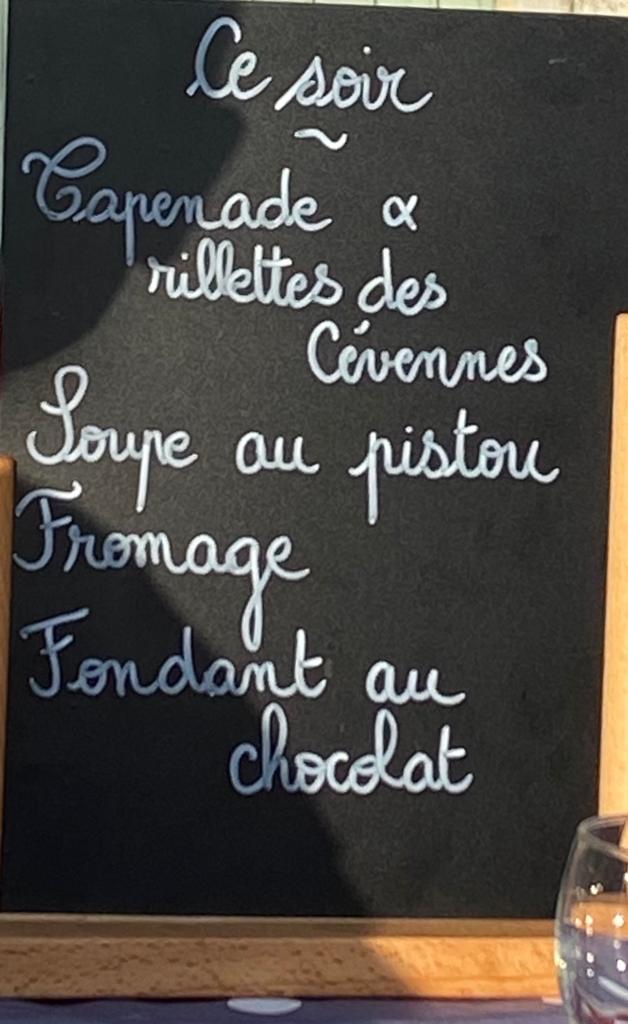 Ce soir
~
Tapenade &
rillettes des
Cévennes
Soupe au pistou
Fromage
Fondant au
chocolat